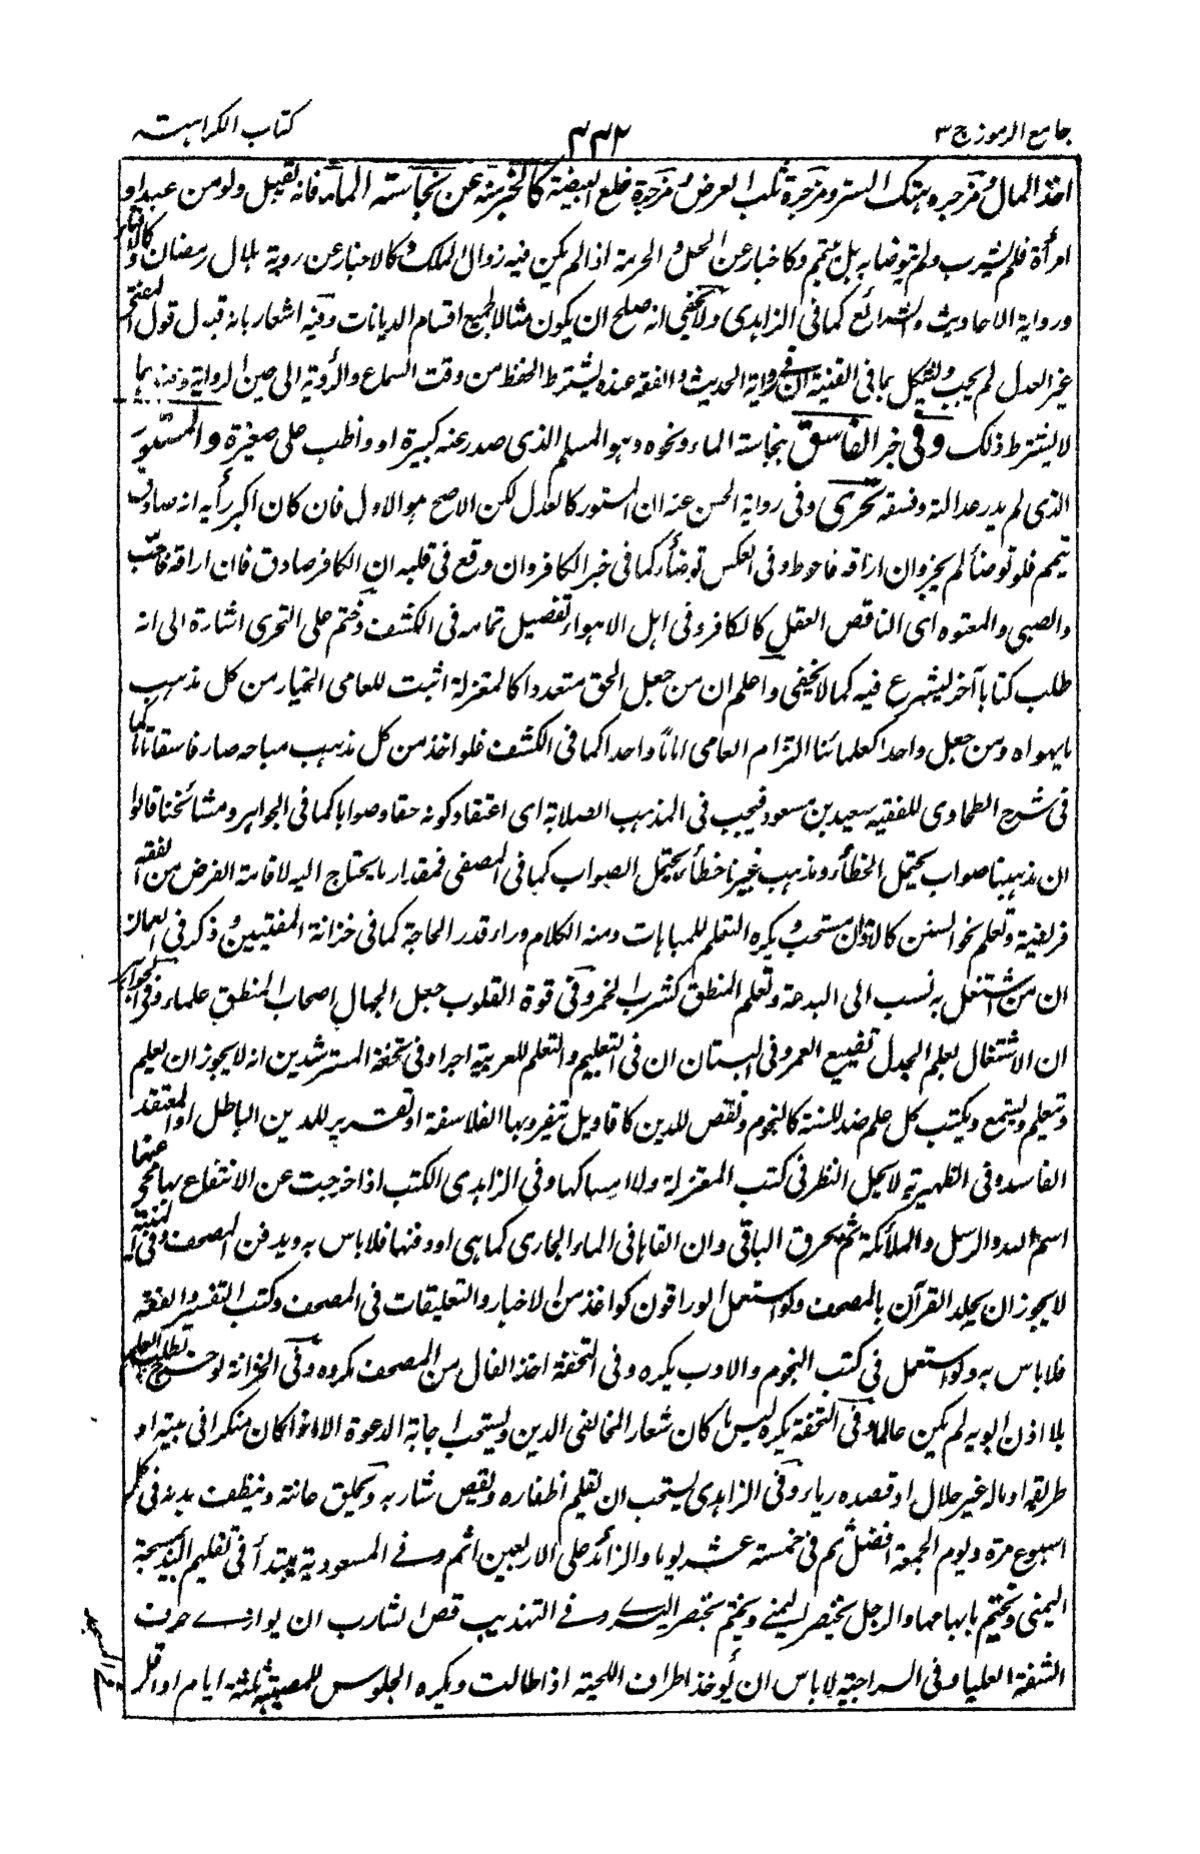 جامع الرموز ج ٣
٣٣٢
كتاب الكراهية
اخذ المال ومزجره بهتك الستر ومزجرة ثلب العرض ومزجرة خلع البيضة كالخبر عن نجاسة الماء فانه تقبل ولو من عبد او
امرأة فلم يشرب ولم يتوضأ به بل يتيمم وكاخبار عن الحل والحرمة اذا لم يكن فيه زوال الملك وكالاخبار عن روية هلال رمضان
ورواية الاحاديث والشرائع كما فى الزاهدى ولا يخفى انه صلح ان يكون مثالا لجميع اقسام الديانات وفيه اشعار بانه قبل قول المفتى
غير العدل لم يجب ويشكل بما فى القنية ان فى رواية الحديث والفقه عنده يشترط الحفظ من وقت السماع والرؤية الى حين الرواية وعندهما
لا يشترط ذلك وفى خبر الفاسق بنجاسة الماء ونحوه وهو المسلم الذى صدر عنه كبيرة او واظب على صغيرة والمستور
الذى لم يدر عدالته وفسقه تحرى وفى رواية الحسن عنه ان المستور كالعدل لكن الاصح هو الاول فان كان اكبر رأيه انه صادق
تيمم فلو توضأ لم يجز وان اراقه فاحوط وفى العكس توضأ كما فى خبر الكافر وان وقع فى قلبه ان الكافر صادق فان اراقه فاحب
والصبى والمعتوه اى الناقص العقل كالكافر وفى اهل الاهواء تفصيل تمامه فى الكشف وختم على التحرى اشارة الى انه
طلب كتابا آخر ليشرع فيه كما لا يخفى واعلم ان من جعل الحق متعددا كالمعتزلة اثبت للعامى الخيار من كل مذهب
ما يهواه ومن جعل واحدا كعلمائنا التزام العامى اماما واحدا كما فى الكشف فلو اخذ من كل مذهب مباحه صار فاسقا تاما كما
فى شرح الطحاوى للفقيه سعيد بن مسعود فيجب فى المذهب الصلابة اى اعتقاد كونه حقا وصوابا كما فى الجواهر ومشائخنا قالوا
ان مذهبنا صواب يحتمل الخطأ ومذهب غيرنا خطأ يحتمل الصواب كما فى المصفى فمقدار ما يحتاج اليه لاقامة الفرض من الفقه
فريضة وتعلم نحو السنن كالاذان مستحب ويكره التعلم للمباهات ومنه الكلام وراء قدر الحاجة كما فى خزانة المفتيين وذكر فى
ان من اشتغل به نسب الى البدعة وتعلم المنطق كشرب الخمر وفى قوة القلوب جعل الجهال اصحاب المنطق علماء وفى الجواهر
ان الاشتغال بعلم الجدل تضييع العمر وفى البستان ان فى التعليم والتعلم للعربية اجرا وفى تحفة المسترشدين انه لا يجوز ان يعلم
ويتعلم ويستمع ويكتب كل علم ضد للسنة كالنجوم ونقص للدين كاقاويل تنفر وبها الفلاسفة او تقرير للدين الباطل او المعتقد
الفاسد وفى الظهيرية لا يحل النظر فى كتب المعتزلة ولا امساكها وفى الزاهدى الكتب اذا خرجت عن الانتفاع بها محى عنها
اسم الله والرسل والملائكة ثم يحرق الباقى وان القاها فى الماء الجارى كما هى او دفنها فلا باس به ويدفن المصحف وفى المنية
لا يجوز ان يجلد القرآن بالمصحف ولو استعمل الوراقون كواغذ من الاخبار والتعليقات فى المصحف وكتب التفسير والفقه
فلا باس به ولو استعمل فى كتب النجوم والادب يكره وفى التحفة اخذ الفال من المصحف مكروه وفى الخزانة لو خرج لطلب العلم
بلا اذن ابويه لم يكن عاقا وفى التحفة يكره لبس ما كان شعار المخالفى الدين ويستحب اجابة الدعوة الا اذا كان منكرا فى بيته او
طريقه او ماله غير حلال او قصده رياء وفى الزاهدى يستحب ان تقليم اظفاره ويقص شاربه ويحلق عانته وينظف بدنه فى كل
اسبوع مرة ويوم الجمعة افضل ثم فى خمسة عشر يوما والزائد على الاربعين اثم وفى المسعودية يبتدأ فى تقليم اليد بسبحة
اليمنى ويختم بابهامها والرجل بخنصر اليمنى ويختم بخنصر اليسرى وفى التهذيب قص الشارب ان يوازى حرف
الشفة العليا وفى السراجية لا باس ان يوخذ اطراف اللحية اذا طالت ويكره الجلوس للمصيبة ثلثة ايام او اقل